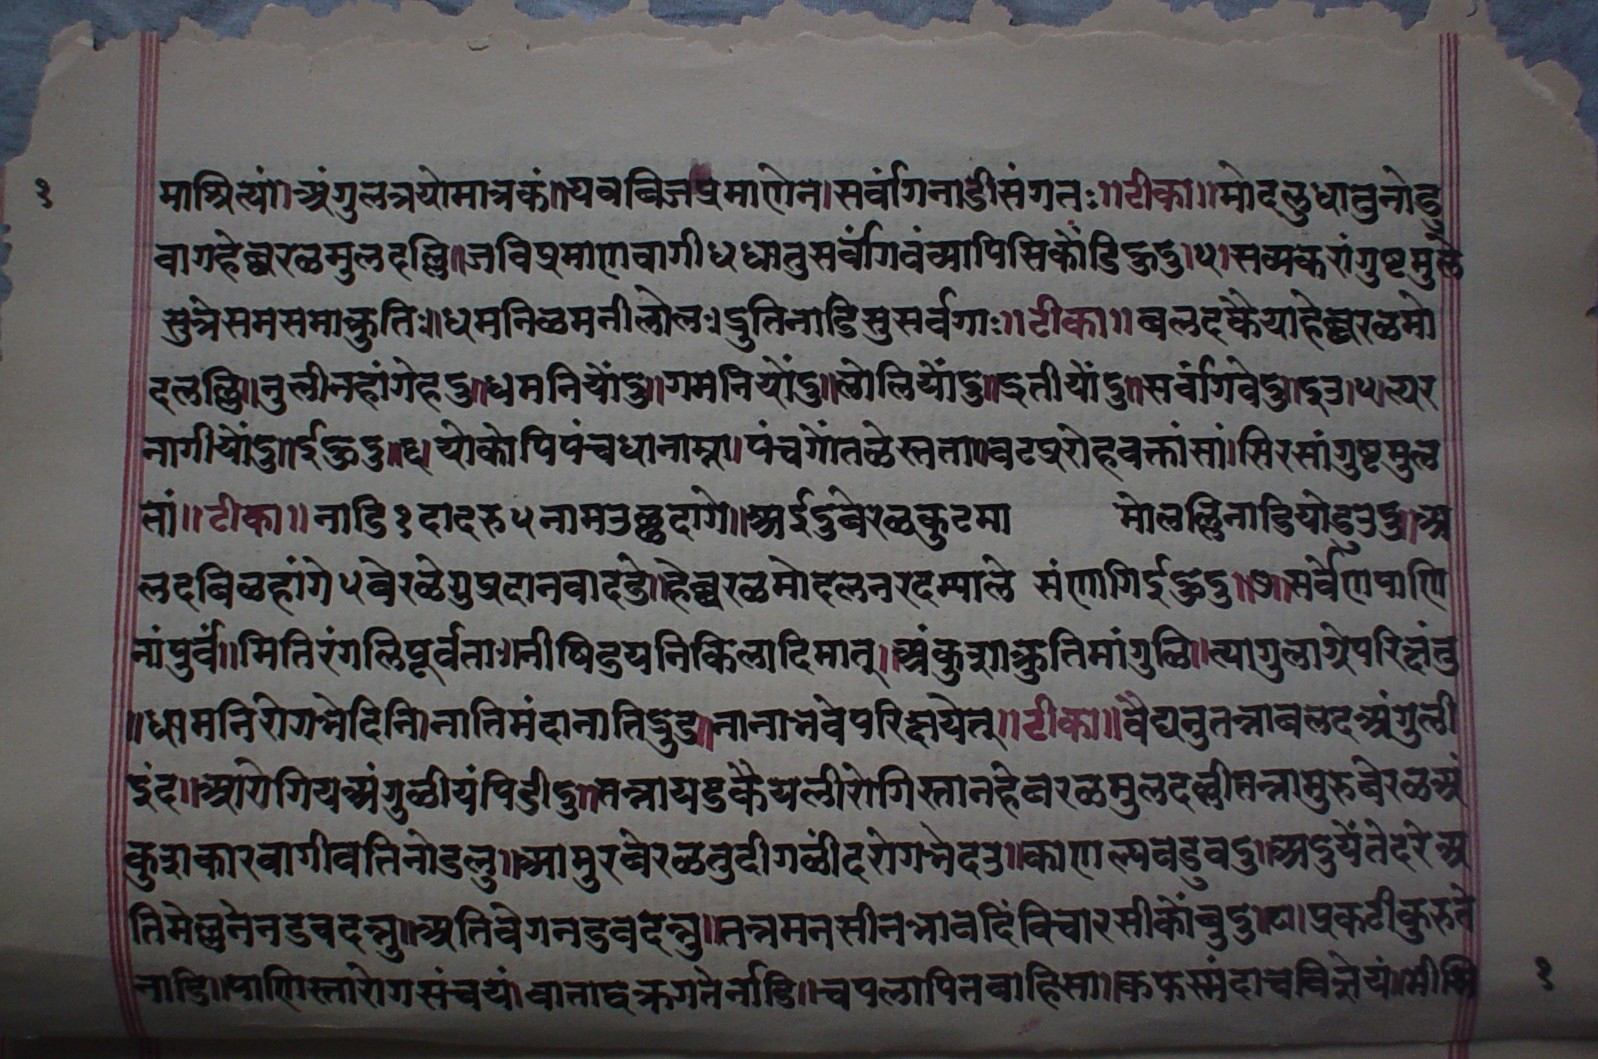 १ माश्रित्यां।अंगुलत्रयोमात्रकं॥यवबिजप्रमाणेन।सर्वांगनाडीसंगतः॥टीका॥मोदलुधातुनोडु
वागहेब्बरळमुलदल्लि॥जविप्रमाणवागीधधातुसर्वंगिवंव्यापिसिकोंडिऊदु।५।सव्यकरांगुष्टमुले
सुत्रेसमसमाकृतिः॥धमनिळमनीलोलः।दुतिनाडिसुसर्वगाः॥टीका॥बलदकैयाहेब्बरळमो
दलल्लि॥नुलीनहांगेहदु॥धमनियोंदु॥गमनियोंदु॥लोलियोंदु॥दुतीयोंदु॥सर्वांगिवेदु॥
नागीयोंदु॥ईऊदु॥६।योकोपिपंचधानाम्ना।पंचगोंतळेस्तता॥वटप्ररोहवक्तांसां।सिरसांगुष्टमुल
तां॥टीका॥नाडि१दादरु५नामउळ्ळदागे॥अईदुबेरळकुटमा मोलल्लिनाडियोडुउदु॥अ
लदबिळहांगे५बेरळेगुप्रदानवादडे॥हेब्बरळमोदलनरदम्याले संणागिईऊदु॥७॥सर्वेणपाणि
नांपुर्वं॥मितिरंगलिपूर्वताः।नीषिडयनिकिलादिमात्॥अंकुशाकृतिमांगुळि॥त्यागुलाग्रेपरि
॥धामनिरोगभेदिनि।नातिमंदानातिदुड॥नानाभवेपरिक्षयेत्॥टीका॥वैद्यनुतन्नाबलदअंगुली
इंद॥आरोगियअंगुळीयंपिडीदु॥तन्नायडकैयलीरोगिस्तानहेबरळमुलदल्लीतन्नामुरुबेरळअं
कुशाकारवागीवतिनोडलु॥आमुरबेरळतुदीगळींदरोगभेदउ॥काणल्यबडुवदु॥अदुयेंतेदरेअ
तिमेल्लनेनडवदन्नु॥अतिवेगनडवदन्नु॥तन्नमनसीनभावदिंविचारसीकोंबुदु।८।प्रकटीकुरुते
नाडि॥पाणिस्तारोगसंचयं।वाताद्वक्रगतेर्नाडि॥चपलापितवाहिसा।कफस्मंदाचविज्ञेयं॥ १